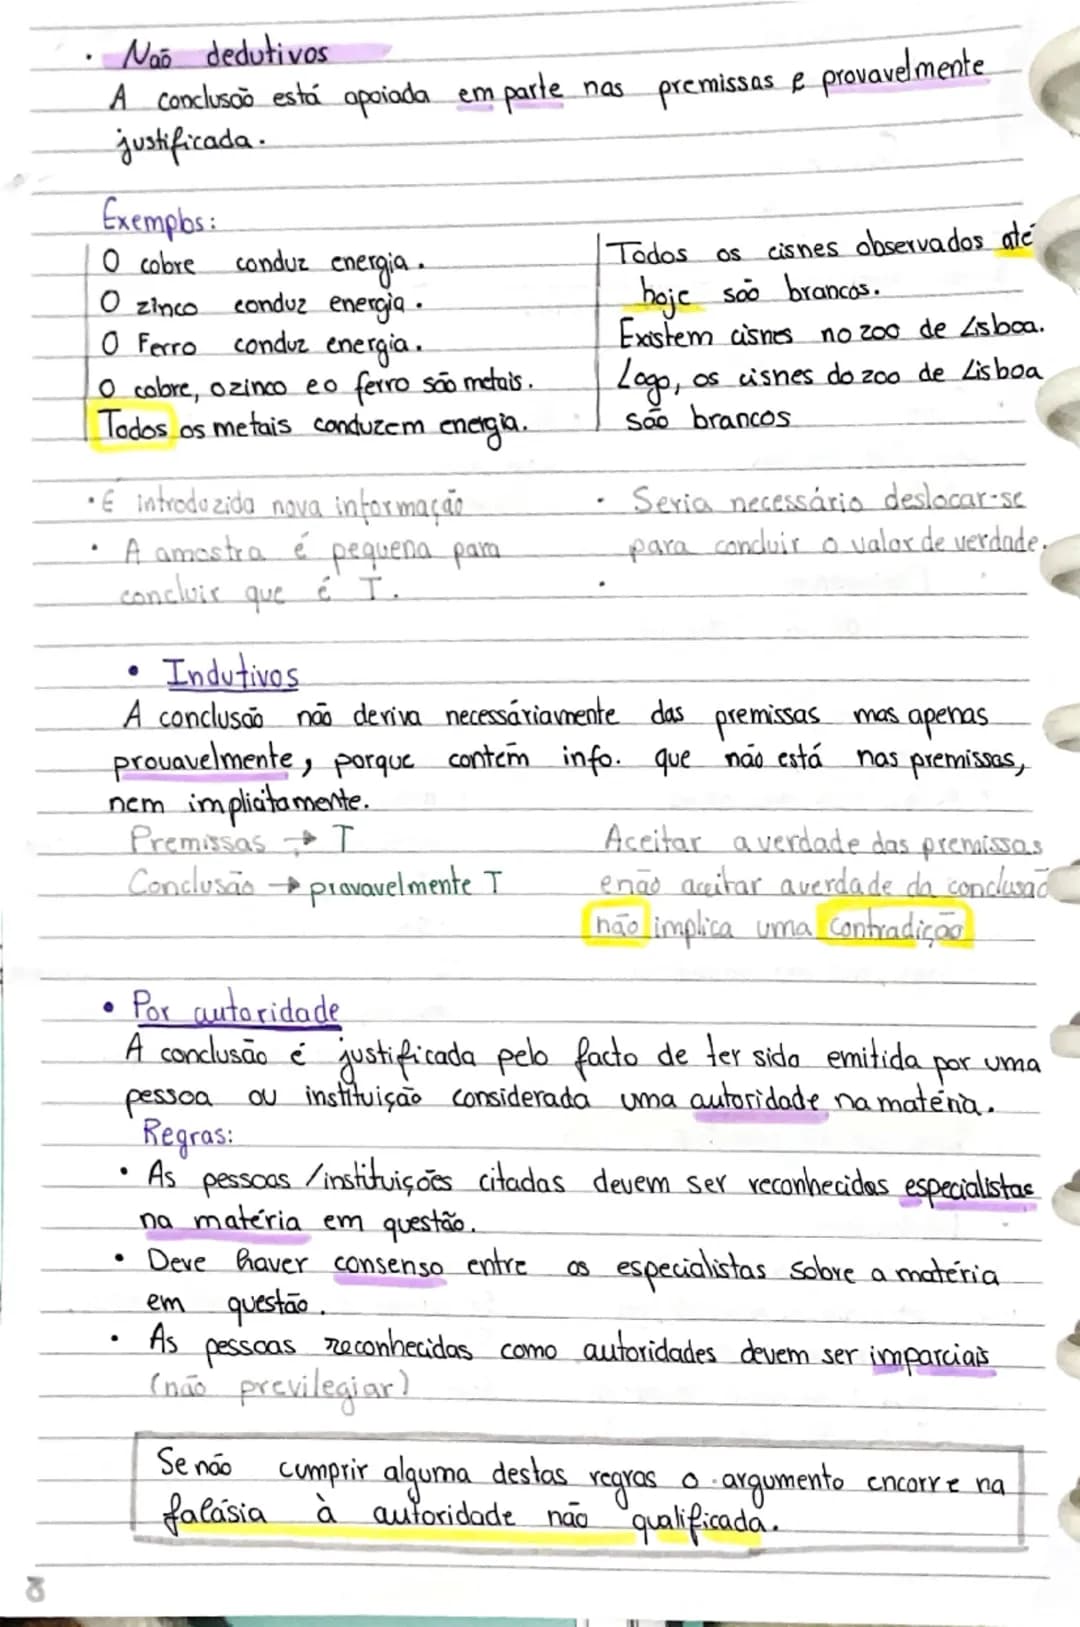 · Não dedutivos
A conclusão está apoiada em parte nas premissas e provavelmente
justificada.
Exemplos:
O cobre conduz energia.
O zinco conduz energia.
O Ferro conduz energia.
O cobre, o zinco e o ferro são metais.
Todos os metais conduzem energia.
Todos os cisnes observados até
hoje são brancos.
Existem cisnes no zoo de Lisboa.
Logo, os cisnes do zoo de Lisboa
são brancos
· É introduzida nova informação
· A amostra é pequena para
concluir que é T.
· Seria necessário deslocar-se
para concluir o valor de verdade.
·
• Indutivos
A conclusão não deriva necessáriamente das premissas mas apenas
provavelmente, porque contém info. que não está nas premissas,
nem implicitamente.
Premissas → T
Conclusão → provavelmente T
Aceitar a verdade das premissas
e não aceitar a verdade da conclusão
não implica uma contradição
• Por autoridade
A conclusão é justificada pelo facto de ter sido emitida por uma
pessoa ou instituição considerada uma autoridade na matéria.
Regras:
• As pessoas /instituições citadas devem ser reconhecidas especialistas
na matéria em questão.
• Deve haver consenso entre os especialistas sobre a matéria
em questão.
• As pessoas reconhecidas como autoridades devem ser imparciais
(não previlegiar)
Se não cumprir alguma destas regras o argumento encorre na
falásia à autoridade não qualificada.
8